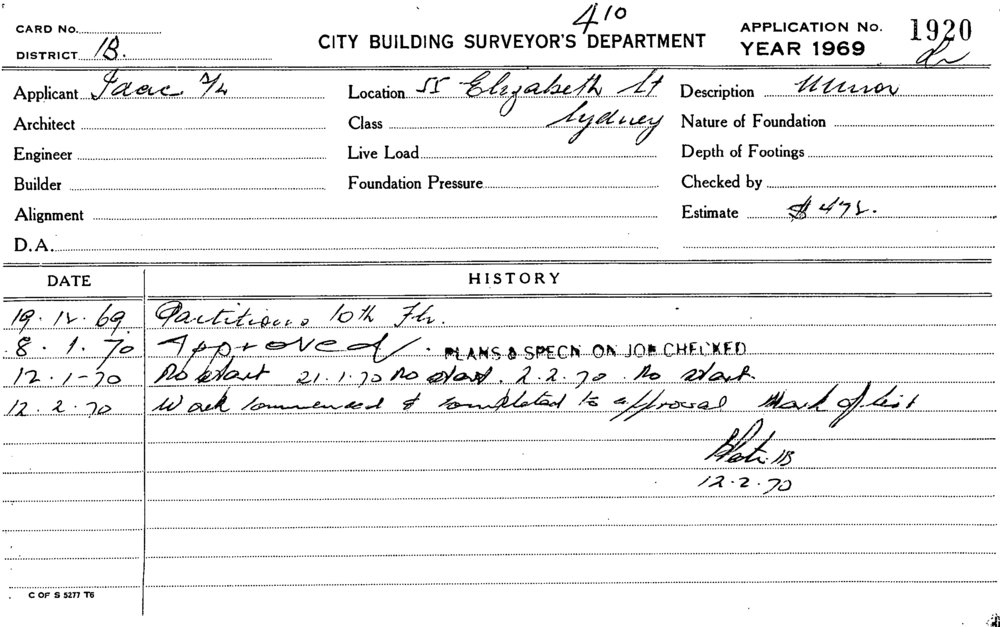 410
CARD No.
DISTRICT 1B.
CITY BUILDING SURVEYOR'S DEPARTMENT
APPLICATION No. 1920
YEAR 1969
Applicant
Location 55 Elizabeth St Sydney
Description Minor
Architect
Class
Nature of Foundation
Engineer
Live Load
Depth of Footings
Builder
Foundation Pressure
Checked by
Alignment
Estimate $472.
D.A.
DATE HISTORY
19.12.69 Partitions 10th Flr.
8.1.70 Approved. PLANS & SPECN ON JOB CHECKED
12.1-70 No start 21.1.70 No start. 2.2.70. No start.
12.2.70 Work commenced & completed to approval Mark off list
1B
12.2.70
C OF S 5277 T6